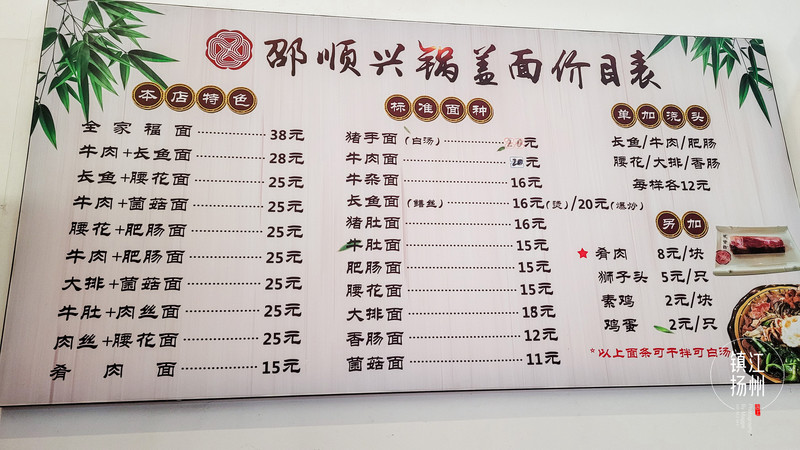 邵顺兴锅盖面价目表
本店特色
全家福面 38元
牛肉+长鱼面 28元
长鱼+腰花面 25元
牛肉+菌菇面 25元
腰花+肥肠面 25元
牛肉+肥肠面 25元
大排+菌菇面 25元
牛肚+肉丝面 25元
肉丝+腰花面 25元
肴肉面 15元
标准面种
猪手面(白汤) 20元
牛肉面 20元
牛杂面 16元
长鱼面(鳝丝) 16元(烫)/20元(爆炒)
猪肚面 16元
牛肚面 15元
肥肠面 15元
腰花面 15元
大排面 18元
香肠面 12元
菌菇面 11元
单加浇头
长鱼/牛肉/肥肠
腰花/大排/香肠
每样各12元
另加
★肴肉 8元/块
狮子头 5元/只
素鸡 2元/块
鸡蛋 2元/只
*以上面条可干拌可白汤
镇江
扬州